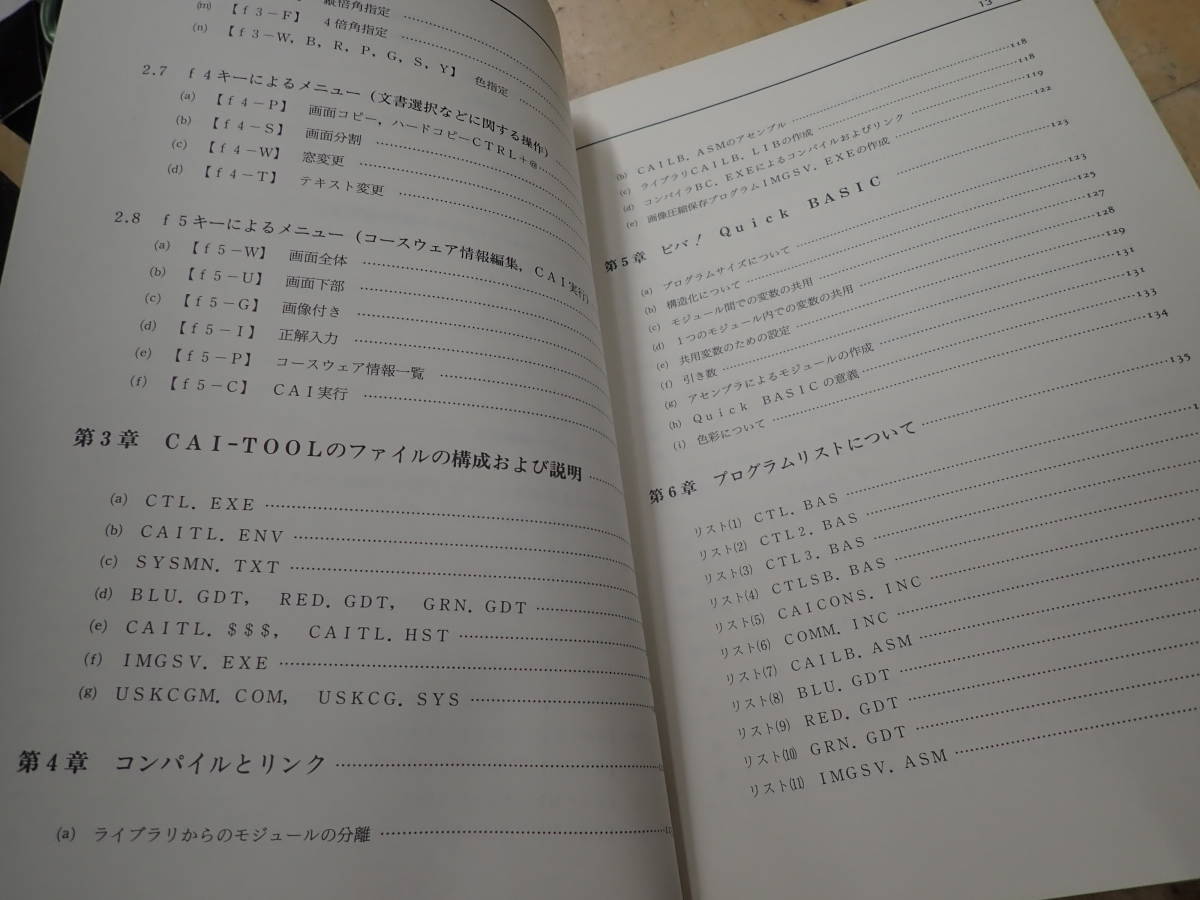 縦倍角指定 ……
(m) 【ｆ３－Ｆ】 ４倍角指定 ……
(n) 【ｆ３－Ｗ，Ｂ，Ｒ，Ｐ，Ｇ，Ｓ，Ｙ】 色指定 ……
2.7 ｆ４キーによるメニュー（文書選択などに関する操作）……
(a) 【ｆ４－Ｐ】 画面コピー，ハードコピーＣＴＲＬ＋＠……
(b) 【ｆ４－Ｓ】 画面分割 ……
(c) 【ｆ４－Ｗ】 窓変更 ……
(d) 【ｆ４－Ｔ】 テキスト変更 ……
2.8 ｆ５キーによるメニュー（コースウェア情報編集，ＣＡＩ実行）
(a) 【ｆ５－Ｗ】 画面全体 ……
(b) 【ｆ５－Ｕ】 画面下部 ……
(c) 【ｆ５－Ｇ】 画像付き ……
(d) 【ｆ５－Ｉ】 正解入力 ……
(e) 【ｆ５－Ｐ】 コースウェア情報一覧 ……
(f) 【ｆ５－Ｃ】 ＣＡＩ実行 ……
第３章 ＣＡＩ－ＴＯＯＬのファイルの構成および説明 ……
(a) ＣＴＬ．ＥＸＥ ……
(b) ＣＡＩＴＬ．ＥＮＶ ……
(c) ＳＹＳＭＮ．ＴＸＴ ……
(d) ＢＬＵ．ＧＤＴ， ＲＥＤ．ＧＤＴ， ＧＲＮ．ＧＤＴ ……
(e) ＣＡＩＴＬ．＄＄＄， ＣＡＩＴＬ．ＨＳＴ ……
(f) ＩＭＧＳＶ．ＥＸＥ ……
(g) ＵＳＫＣＧＭ．ＣＯＭ， ＵＳＫＣＧ．ＳＹＳ ……
第４章 コンパイルとリンク ……
(a) ライブラリからのモジュールの分離 ……
13
(b) ＣＡＩＬＢ．ＡＳＭのアセンブル …… 118
(c) ライブラリＣＡＩＬＢ．ＬＩＢの作成 …… 118
(d) コンパイラＢＣ．ＥＸＥによるコンパイルおよびリンク …… 119
(e) 画像圧縮保存プログラムＩＭＧＳＶ．ＥＸＥの作成 …… 122
第５章 ビバ！ Ｑｕｉｃｋ ＢＡＳＩＣ …… 123
(a) プログラムサイズについて …… 123
(b) 構造化について …… 125
(c) モジュール間での変数の共用 …… 127
(d) １つのモジュール内での変数の共用 …… 128
(e) 共用変数のための設定 …… 129
(f) 引き数 …… 131
(g) アセンブラによるモジュールの作成 …… 131
(h) Ｑｕｉｃｋ ＢＡＳＩＣの意義 …… 133
(i) 色彩について …… 134
第６章 プログラムリストについて …… 135
リスト(1) ＣＴＬ．ＢＡＳ ……
リスト(2) ＣＴＬ２．ＢＡＳ ……
リスト(3) ＣＴＬ３．ＢＡＳ ……
リスト(4) ＣＴＬＳＢ．ＢＡＳ ……
リスト(5) ＣＡＩＣＯＮＳ．ＩＮＣ ……
リスト(6) ＣＯＭＭ．ＩＮＣ ……
リスト(7) ＣＡＩＬＢ．ＡＳＭ ……
リスト(8) ＢＬＵ．ＧＤＴ ……
リスト(9) ＲＥＤ．ＧＤＴ ……
リスト(10) ＧＲＮ．ＧＤＴ ……
リスト(11) ＩＭＧＳＶ．ＡＳＭ ……